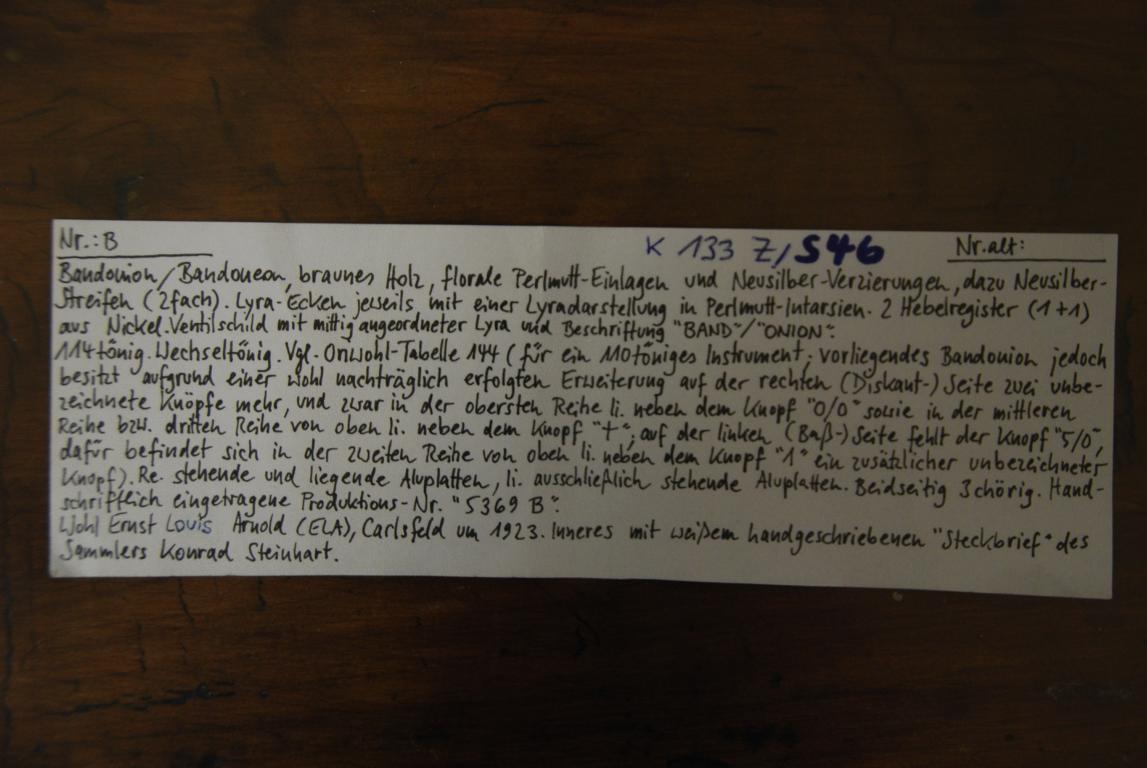 Nr.: B K 133 Z/546 Nr. alt:
Bandonion/Bandoneon, braunes Holz, florale Perlmutt-Einlagen und Neusilber-Verzierungen, dazu Neusilber-
Streifen (2fach). Lyra-Ecken jeweils mit einer Lyradarstellung in Perlmutt-Intarsien. 2 Hebelregister (1+1)
aus Nickel. Ventilschild mit mittig angeordneter Lyra und Beschriftung "BAND"/"ONION".
114tönig. Wechseltönig. Vgl. Onwohl-Tabelle 144 (für ein 110töniges Instrument; vorliegendes Bandonion jedoch
besitzt aufgrund einer wohl nachträglich erfolgten Erweiterung auf der rechten (Diskant-) Seite zwei unbe-
zeichnete Knöpfe mehr, und zwar in der obersten Reihe li. neben dem Knopf "0/0" sowie in der mittleren
Reihe bzw. dritten Reihe von oben li. neben dem Knopf "+"; auf der linken (Baß-) Seite fehlt der Knopf "5/0",
dafür befindet sich in der zweiten Reihe von oben li. neben dem Knopf "1" ein zusätzlicher unbezeichneter
Knopf). Re. stehende und liegende Aluplatten, li. ausschließlich stehende Aluplatten. Beidseitig 3chörig. Hand-
schriftlich eingetragene Produktions-Nr. "5369 B".
Wohl Ernst Louis Arnold (ELA), Carlsfeld um 1923. Inneres mit weißem handgeschriebenen "Steckbrief" des
Sammlers Konrad Steinhart.